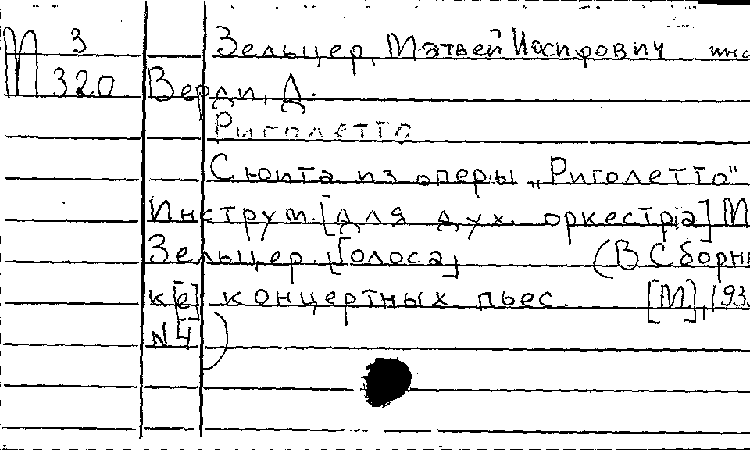 М 3 Зельцер, Матвей Иосифович инс
320 Верди, Д.
Риголетто
Сюита из оперы „Риголетто"
Инструм. [для дух. оркестра] М
Зельцер. [Голоса] (В Сборни
к[е] концертных пьес [М], 193
N 4)